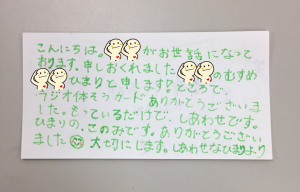 こんにちは。がお世話になって
おります。申しおくれましたのむすめ
ひまりと申します?ところで、
ラジオ体そうカードありがとうございま
した。もっているだけで、しあわせです。
ひまりの、このみです。ありがとうござい
ました 大切にします。しあわせなひまりより